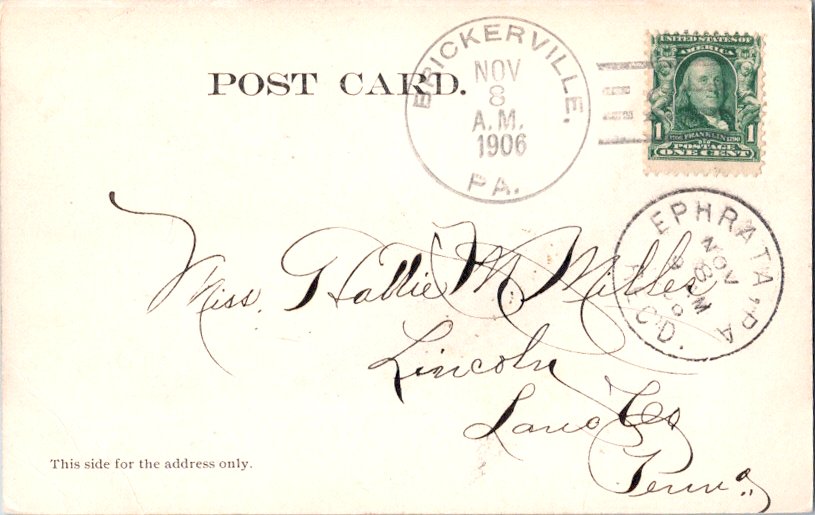 POST CARD.
BRICKERVILLE,
NOV
8
A.M.
1906
PA.
UNITED STATES OF
AMERICA
1 FRANKLIN 1
POSTAGE
ONE CENT
EPHRATA, PA
NOV
8
REC'D.
Miss. Hallie M Miller
Lincoln
Lanc Co
Penna
This side for the address only.